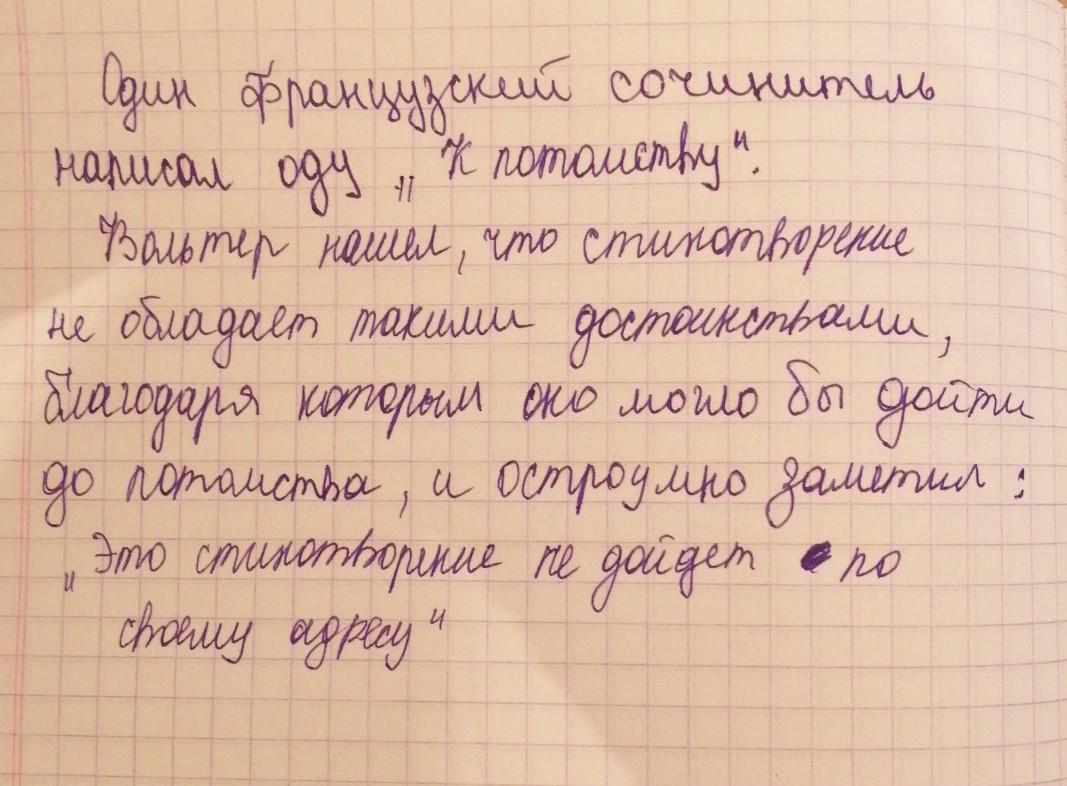 Один французский сочинитель
написал оду „К потомству".
Вольтер нашел, что стихотворение
не обладает такими достоинствами,
благодаря которым оно могло бы дойти
до потомства, и остроумно заметил:
„Это стихотворение не дойдет по
своему адресу"